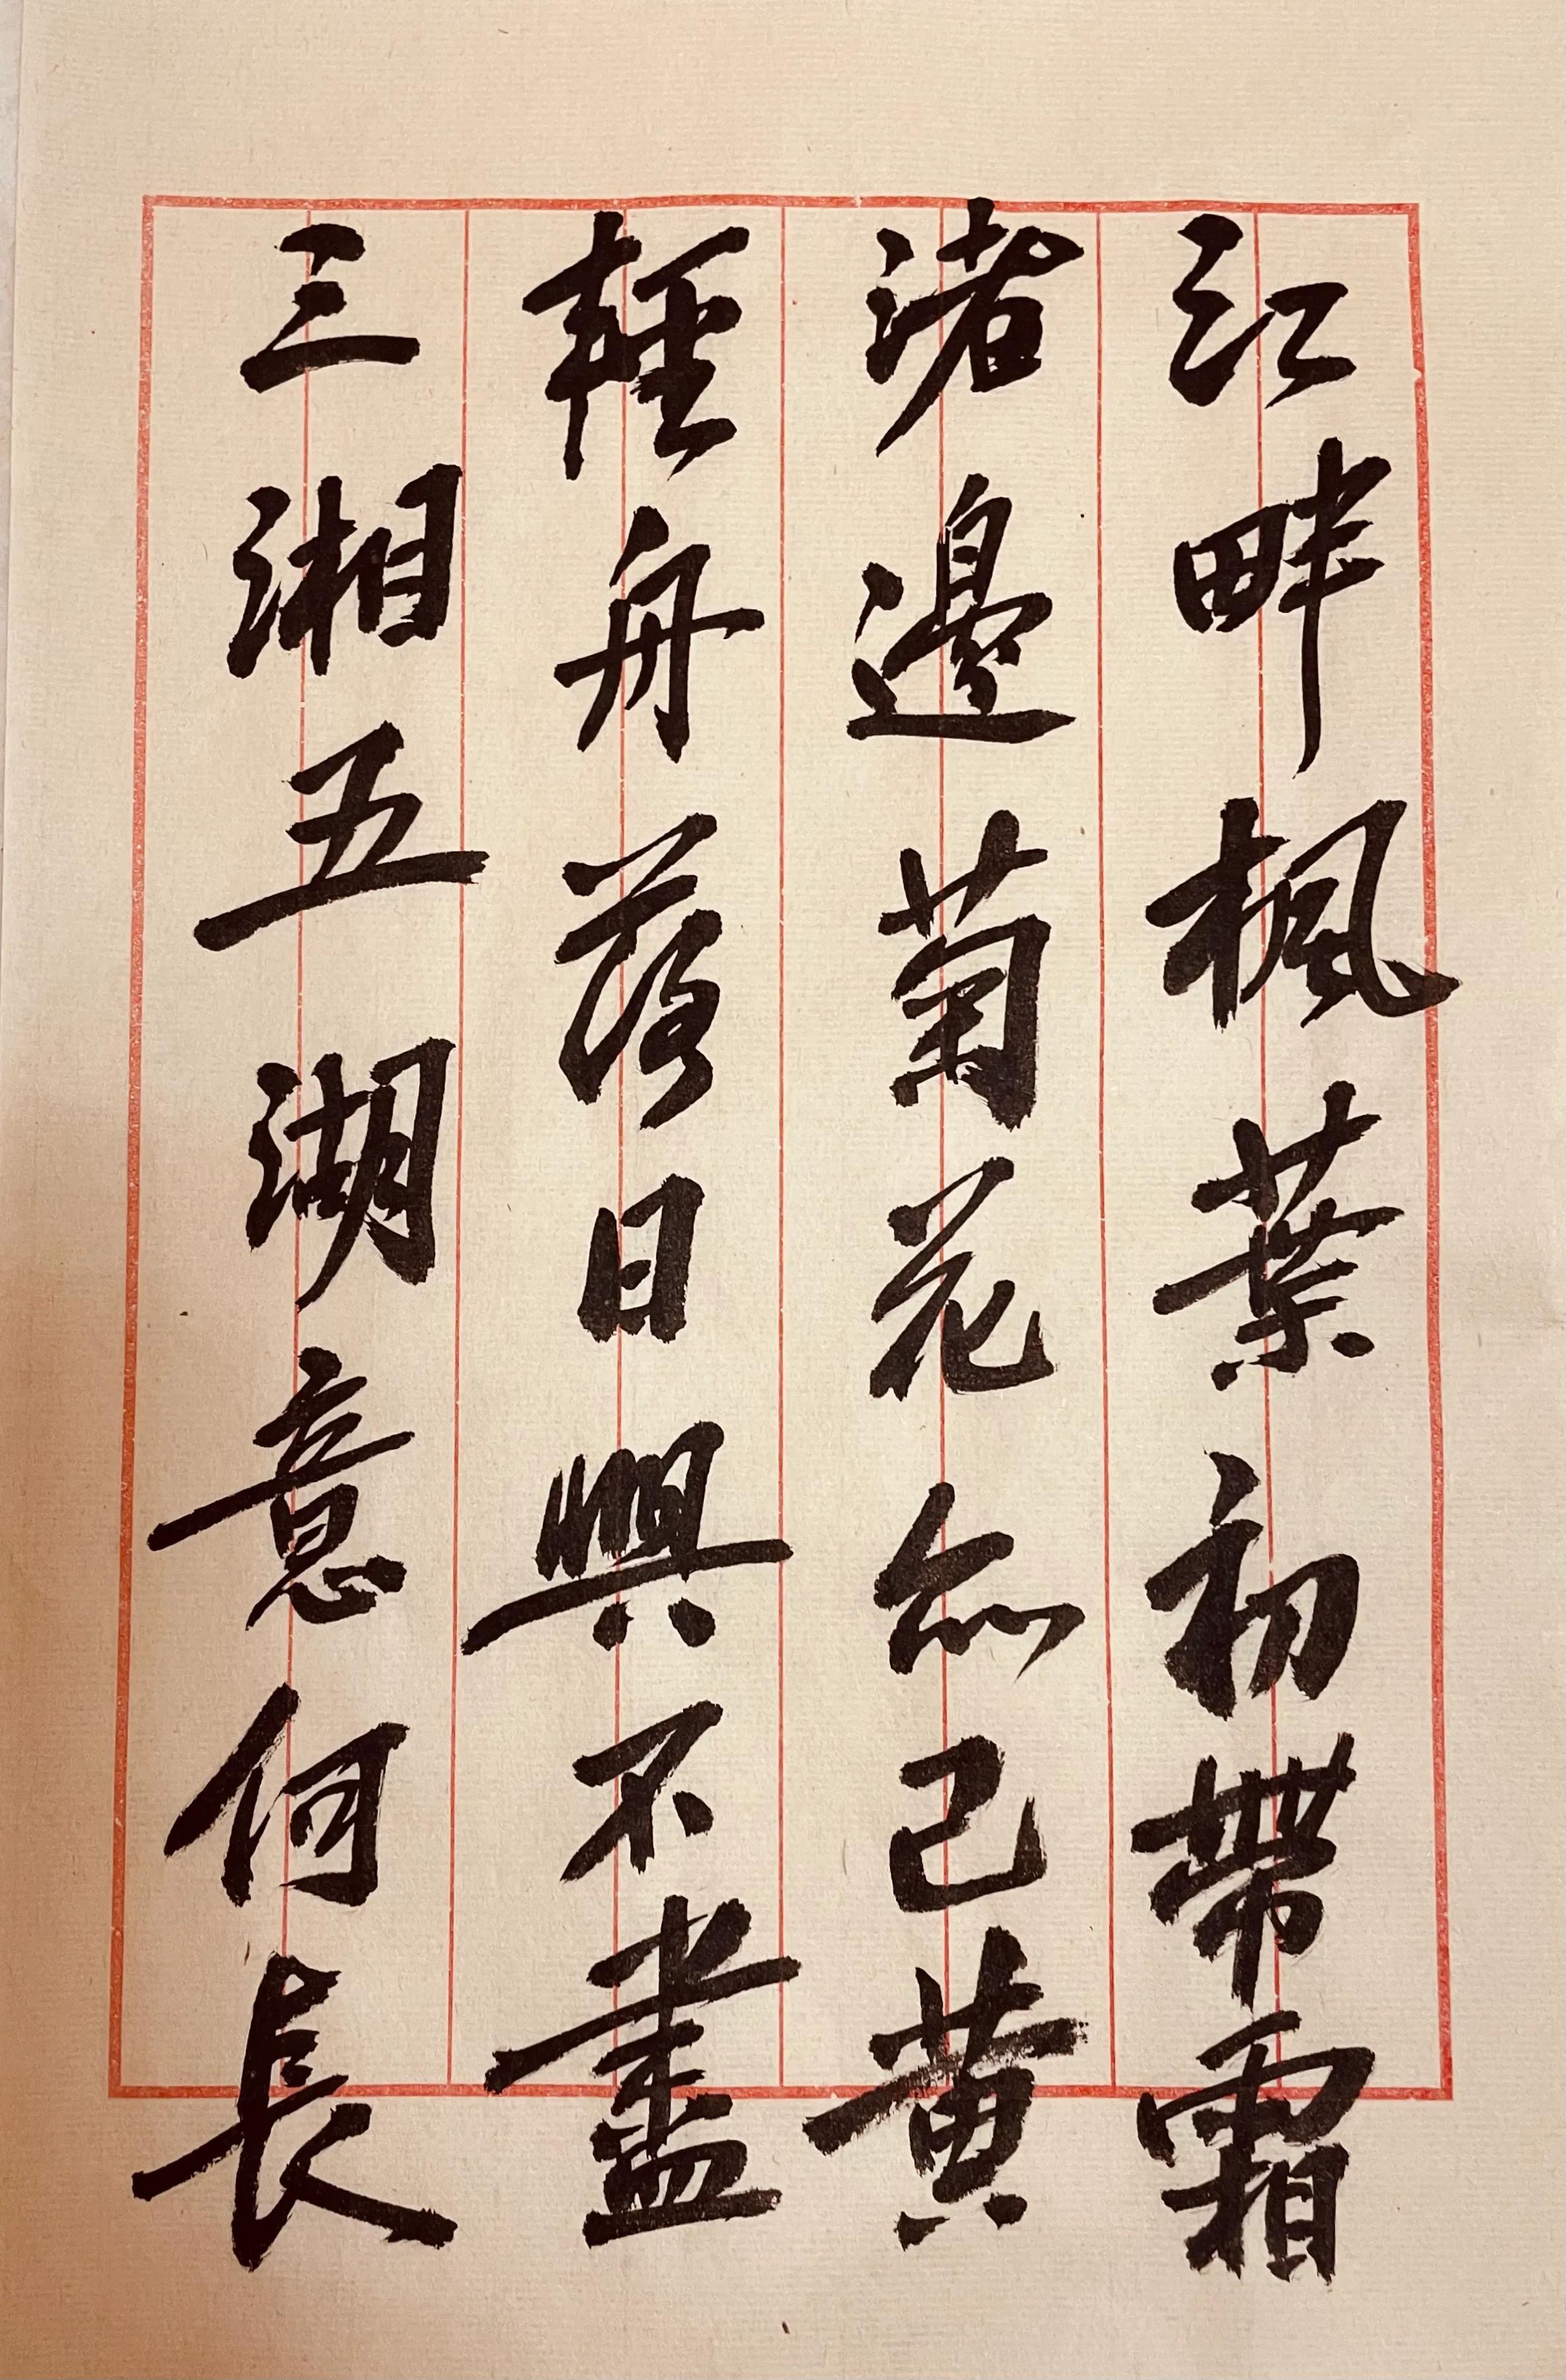 江畔楓葉初帶霜
渚邊菊花亦已黄
輕舟落日興不盡
三湘五湖意何長